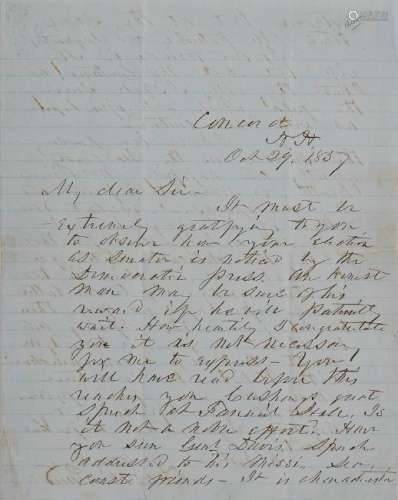 Concord
N H
Oct 29. 1857
My dear Sir -
It must be
extremely gratifying to you
to observe how your election
as Senator is noticed by the
Democratic press. An honest
man may be sure of his
reward if he will patiently
wait. How heartily I congratulate
you it is not necessary
for me to express - You
will have read before this
reaches you Cushings great
Speech at Faneuil Hall. Is
it not a noble effort. Have
you seen Genl Davis' Speech
addressed to his Missi
friends - It is characteris